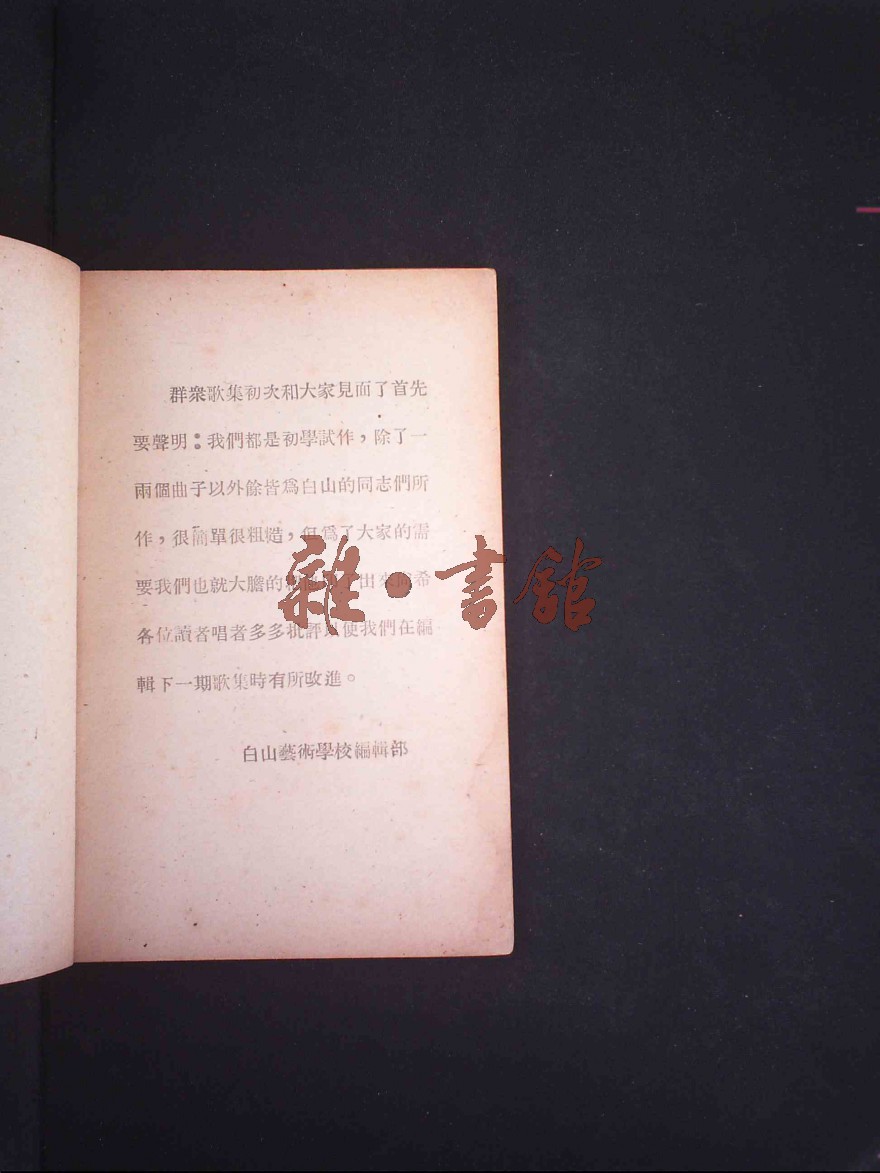 群衆歌集初次和大家見面了首先
要聲明：我們都是初學試作，除了一
兩個曲子以外餘皆爲白山的同志們所
作，很簡單很粗糙，但爲了大家的需
要我們也就大膽的出來尚希
各位讀者唱者多多批評以使我們在編
輯下一期歌集時有所改進。
白山藝術學校編輯部
雜·書館